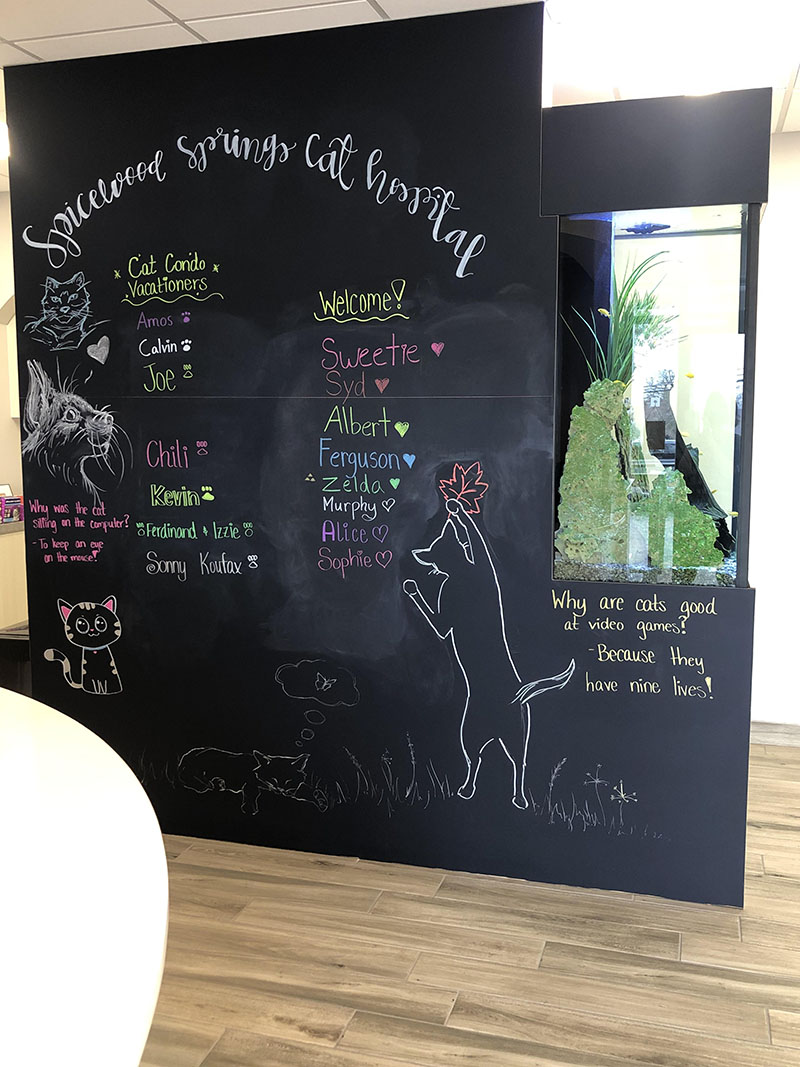 Spicewood Springs Cat Hospital
Cat Condo
Vacationers
Amos
Calvin
Joe
Chili
Kevin
Ferdinand & Izzie
Sonny Koufax
Welcome!
Sweetie
Syd
Albert
Ferguson
Zelda
Murphy
Alice
Sophie
Why was the cat
sitting on the computer?
- To keep an eye
on the mouse!
Why are cats good
at video games?
- Because they
have nine lives!